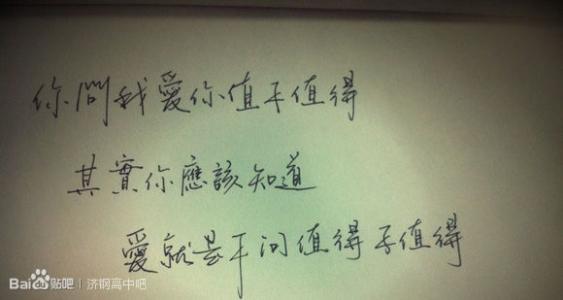 你問我愛你值不值得
其實你應該知道
愛就是不问值得不值得
Bai贴吧 | 济钢高中吧